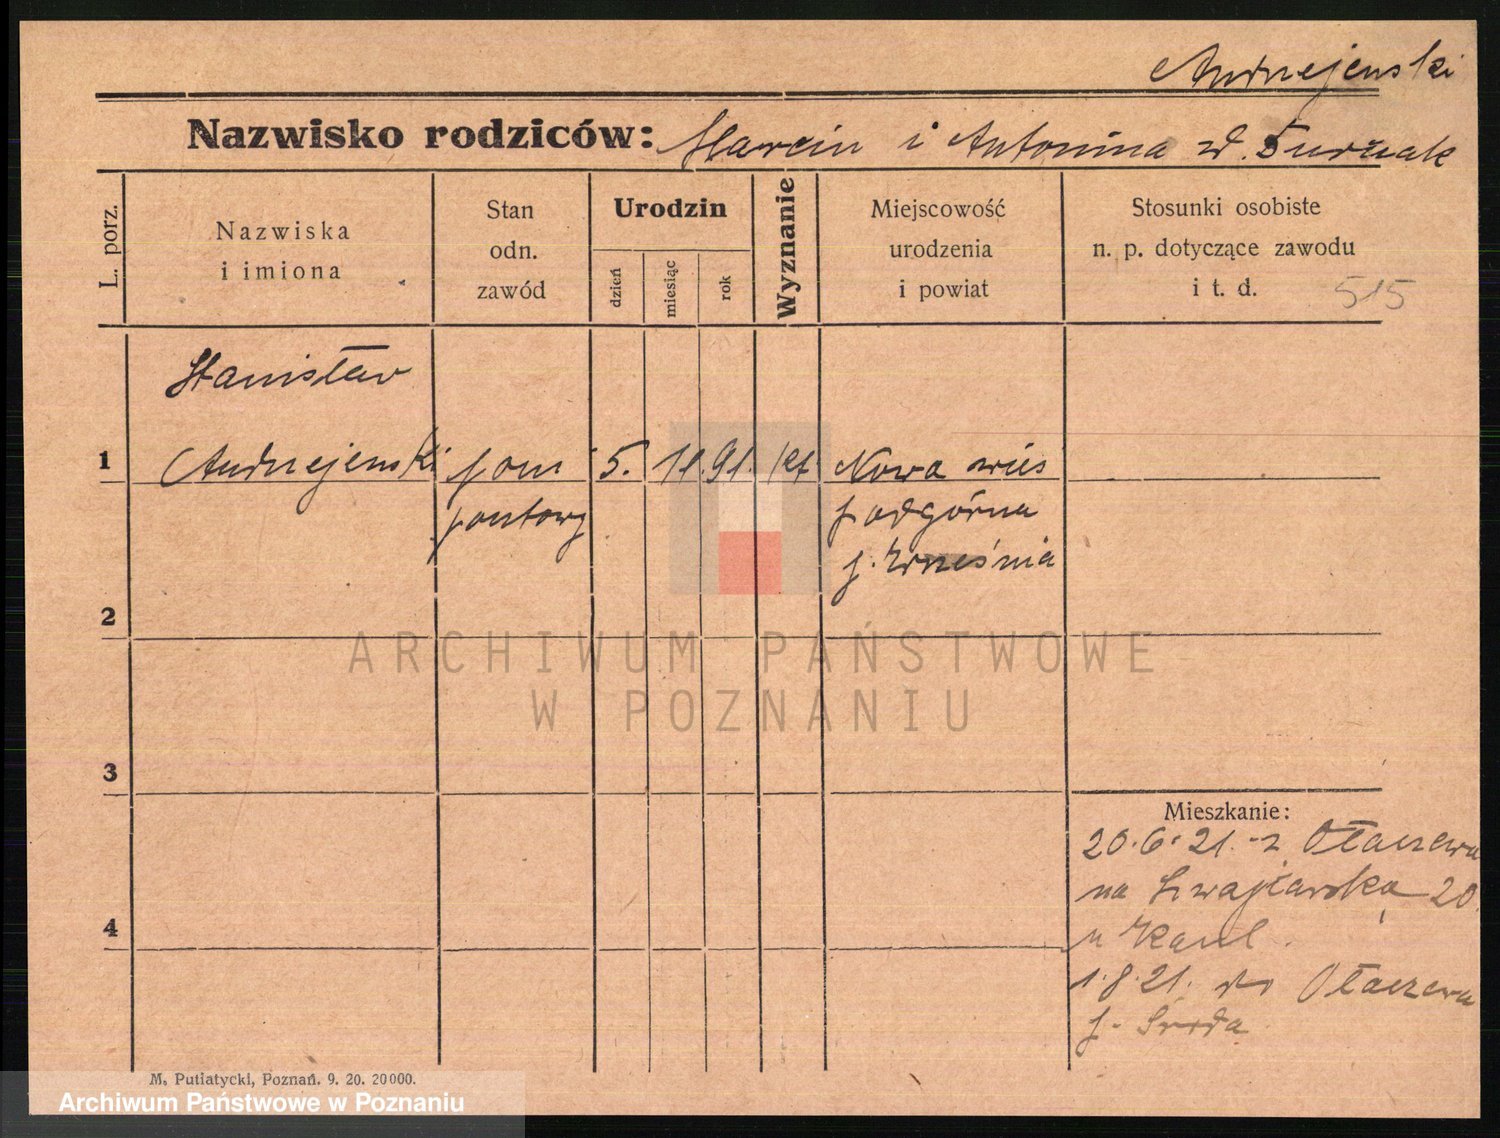 Andrzejewski
Nazwisko rodziców: Marcin i Antonina zd.
L. porz.
Nazwiska
i imiona
Stan
odn.
zawód
Urodzin
dzień
miesiąc
rok
Wyznanie
Miejscowość
urodzenia
i powiat
Stosunki osobiste
n. p. dotyczące zawodu
i t. d.
515
Stanisław
1 Andrzejewski pom 5. 11. 91. kt Nowa wieś
pocztowy podgórna
p. Września
2
3
4
Mieszkanie:
20.6.21. z Otaczewa
na Szwajcarska 20
u
1.8.21. do Otaczewa
p. Środa
M. Putiatycki, Poznań. 9. 20. 20000.
ARCHIWUM PAŃSTWOWE
W POZNANIU
Archiwum Państwowe w Poznaniu